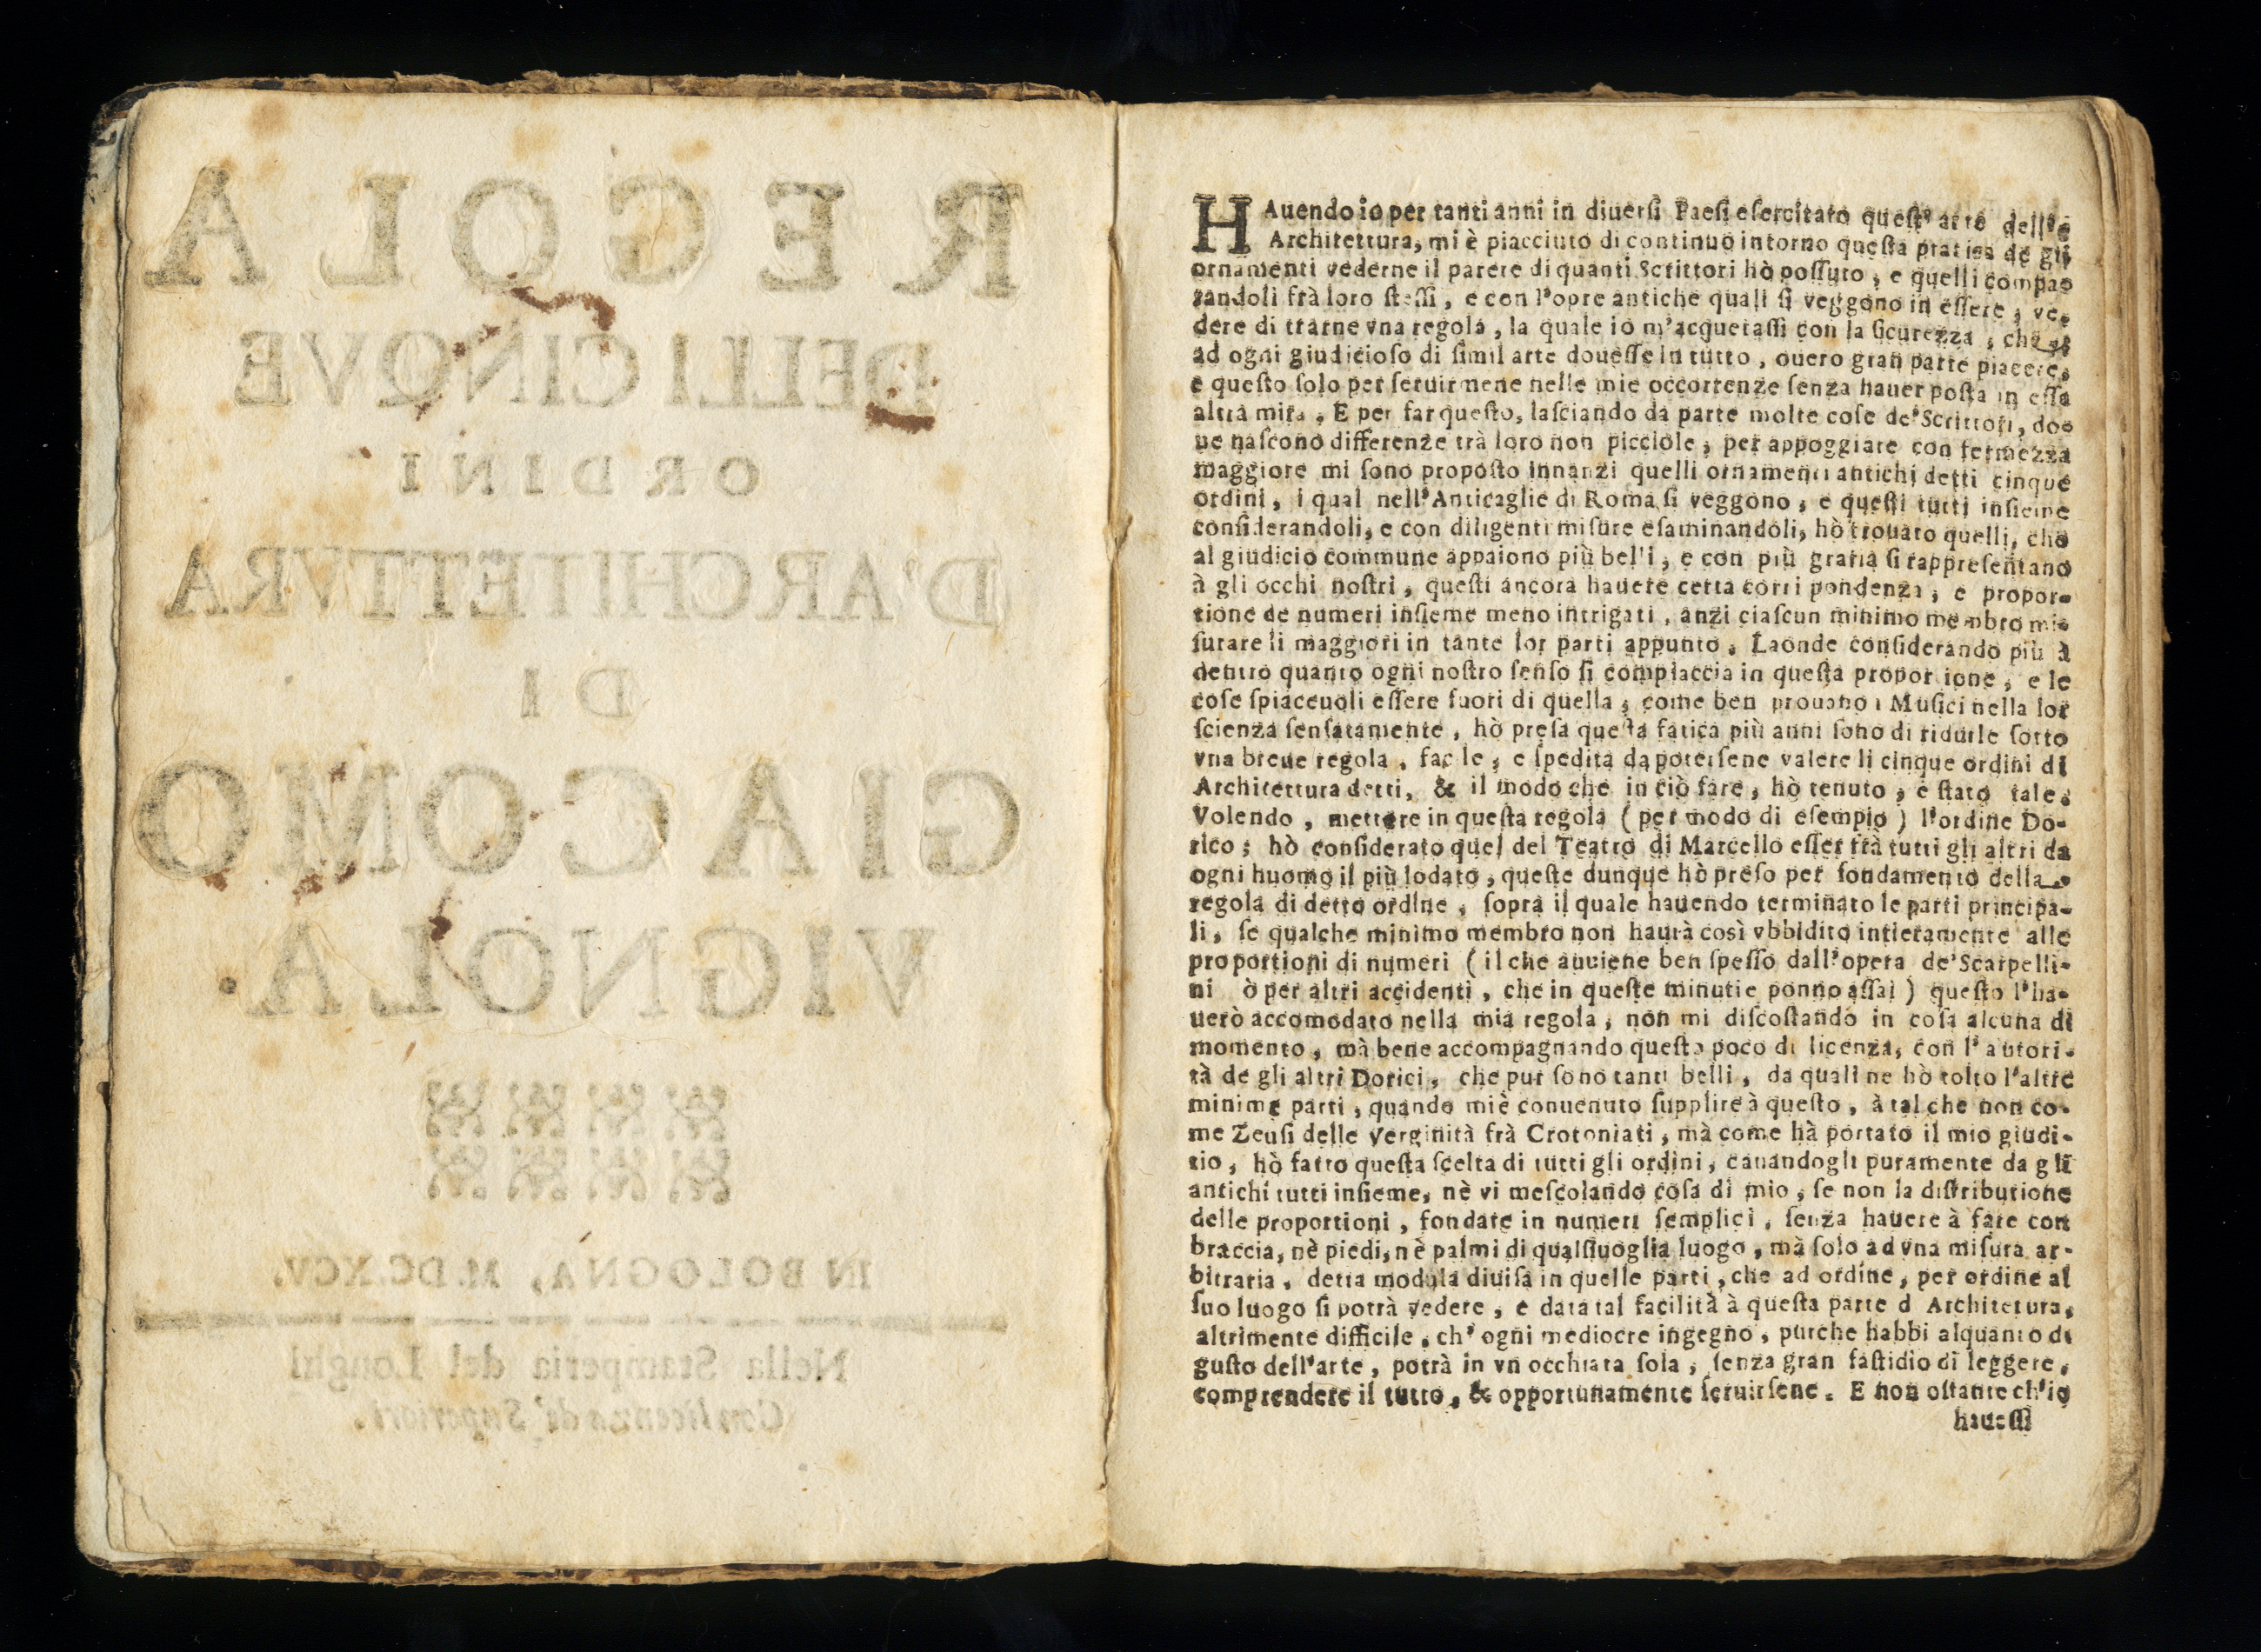 REGOLA
DELLI CINQVE
ORDINI
D'ARCHITETTVRA
DI
GIACOMO
VIGNOLA.
IN BOLOGNA, M.DC.XCV.
Nella Stamperia del Longhi
Con licenza de' Superiori.
HAuendo io per tanti anni in diuersi Paesi esercitato quest' arte dell'
Architettura, mi è piacciuto di continuo intorno questa pratica de gli
ornamenti vederne il parere di quanti Scrittori hò possuto, e quelli compa-
randoli frà loro stessi, e con l'opre antiche quali si veggono in essere, ve-
dere di trarne vna regola, la quale io m'acquetassi con la sicurezza, che
ad ogni giudicioso di simil arte douesse in tutto, ouero gran parte piacere,
e questo solo per seruirmene nelle mie occorrenze senza hauer posta in essa
altra mira. E per far questo, lasciando da parte molte cose de'Scrittori, do-
ue nascono differenze trà loro non picciole, per appoggiare con fermezza
maggiore mi sono proposto innanzi quelli ornamenti antichi detti cinque
ordini, i qual nell'Anticaglie di Roma si veggono, e questi tutti insieme
considerandoli, e con diligenti misure esaminandoli, hò trouato quelli, che
al giudicio commune appaiono più belli, e con più gratia si rappresentano
à gli occhi nostri, questi ancora hauere certa corri pondenza, e propor-
tione de numeri insieme meno intrigati, anzi ciascun minimo membro mi-
surare li maggiori in tante lor parti appunto. Laonde considerando più à
dentro quanto ogni nostro senso si compiaccia in questa proportione, e le
cose spiaceuoli essere fuori di quella, come ben prouano i Musici nella lor
scienza sensatamente, hò presa questa fatica più anni sono di ridurle sotto
vna breue regola, fac le, e spedita da potersene valere li cinque ordini di
Architettura detti, & il modo che in ciò fare, hò tenuto, è stato tale.
Volendo, mettere in questa regola (per modo di esempio) l'ordine Do-
rico; hò considerato quel del Teatro di Marcello esser frà tutti gli altri da
ogni huomo il più lodato, queste dunque hò preso per fondamento della
regola di detto ordine, sopra il quale hauendo terminato le parti principa-
li, se qualche minimo membro non haurà così vbbidito intieramente alle
proportioni di numeri (il che auuiene ben spesso dall'opera de'Scarpelli-
ni ò per altri accidenti, che in queste minutie ponno assai) questo l'ha-
uerò accomodato nella mia regola, non mi discostando in cosa alcuna di
momento, mà bene accompagnando questo poco di licenza, con l' autori-
tà de gli altri Dorici, che pur sono tanti belli, da quali ne hò tolto l'altre
minime parti, quando miè conuenuto supplire à questo, à tal che non co-
me Zeusi delle Verginità frà Crotoniati, mà come hà portato il mio giudi-
tio, hò fatto questa scelta di tutti gli ordini, cauandogli puramente da gli
antichi tutti insieme, nè vi mescolando cosa di mio, se non la distributione
delle proportioni, fondate in numeri semplici, senza hauere à fare con
braccia, nè piedi, nè palmi di qualsiuoglia luogo, mà solo ad vna misura ar-
bitraria, detta modula diuisa in quelle parti, che ad ordine, per ordine al
suo luogo si potrà vedere, e data tal facilità à questa parte d Architetura,
altrimente difficile, ch' ogni mediocre ingegno, purche habbi alquanto di
gusto dell'arte, potrà in vn occhiata sola, senza gran fastidio di leggere,
comprendere il tutto, & opportunamente seruirsene. E non ostante ch'io
hauessi